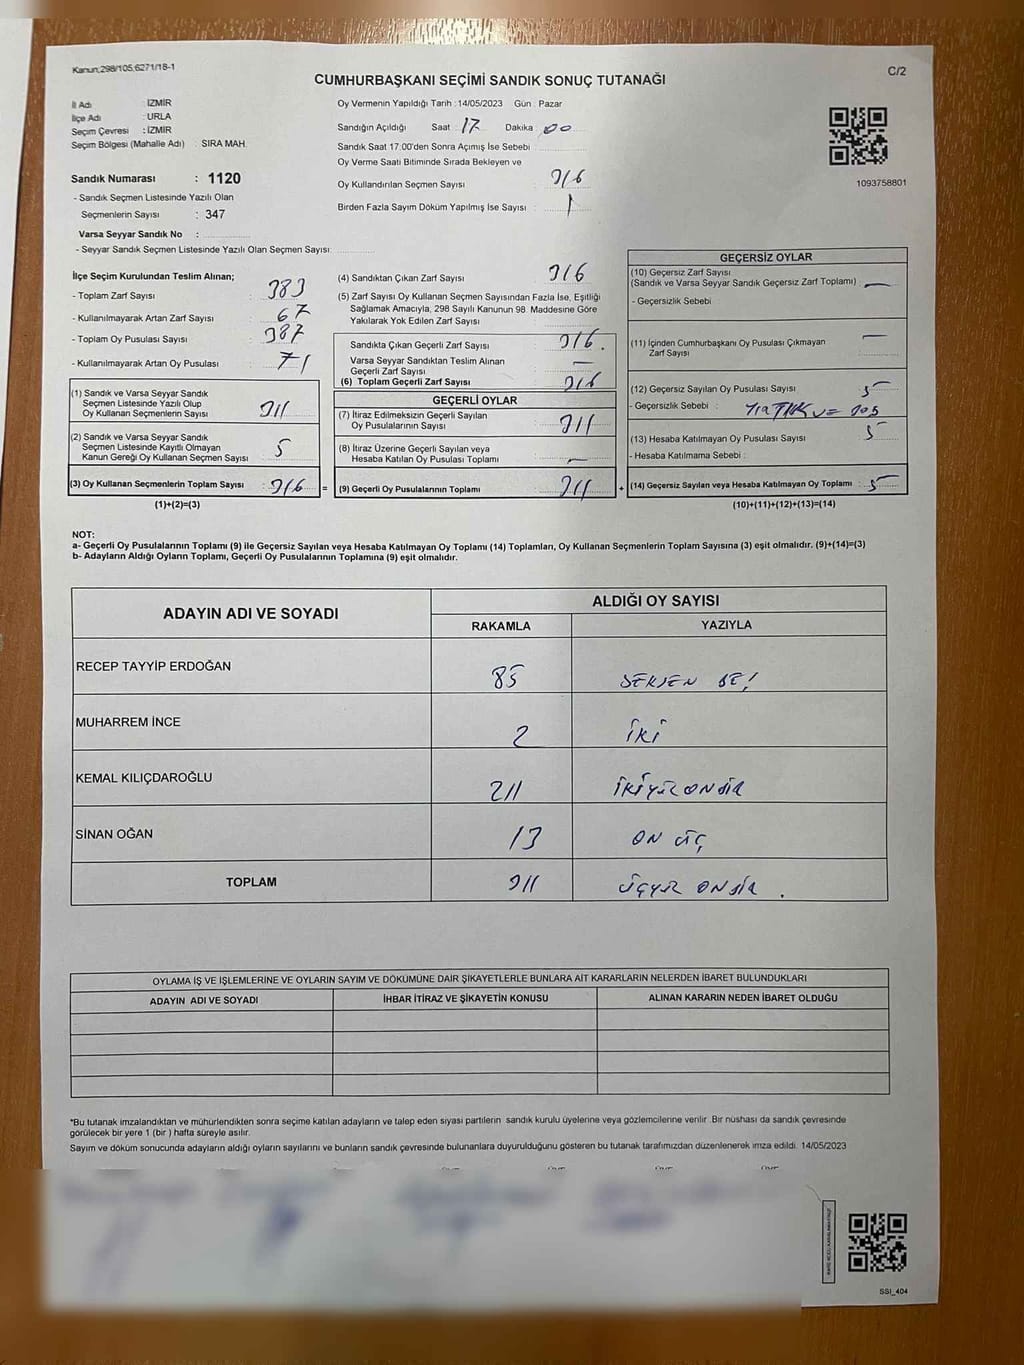 Kanun;298/105,6271/18-1
C/2
CUMHURBAŞKANI SEÇİMİ SANDIK SONUÇ TUTANAĞI
İl Adı : İZMİR
İlçe Adı : URLA
Seçim Çevresi : İZMİR
Seçim Bölgesi (Mahalle Adı) : SIRA MAH.
Sandık Numarası : 1120
- Sandık Seçmen Listesinde Yazılı Olan
Seçmenlerin Sayısı : 347
Varsa Seyyar Sandık No :
- Seyyar Sandık Seçmen Listesinde Yazılı Olan Seçmen Sayısı:
Oy Vermenin Yapıldığı Tarih :14/05/2023 Gün : Pazar
Sandığın Açıldığı Saat : 17 Dakika : 00
Sandık Saat 17:00'den Sonra Açımış İse Sebebi :
Oy Verme Saati Bitiminde Sırada Bekleyen ve
Oy Kullandırılan Seçmen Sayısı : 316
Birden Fazla Sayım Döküm Yapılmış İse Sayısı : 1
1093758801
İlçe Seçim Kurulundan Teslim Alınan;
- Toplam Zarf Sayısı : 383
- Kullanılmayarak Artan Zarf Sayısı : 67
- Toplam Oy Pusulası Sayısı : 387
- Kullanılmayarak Artan Oy Pusulası : 71
(1) Sandık ve Varsa Seyyar Sandık
Seçmen Listesinde Yazılı Olup
Oy Kullanan Seçmenlerin Sayısı : 311
(2) Sandık ve Varsa Seyyar Sandık
Seçmen Listesinde Kayıtlı Olmayan
Kanun Gereği Oy Kullanan Seçmen Sayısı : 5
(3) Oy Kullanan Seçmenlerin Toplam Sayısı : 316 =
(1)+(2)=(3)
(4) Sandıktan Çıkan Zarf Sayısı : 316
(5) Zarf Sayısı Oy Kullanan Seçmen Sayısından Fazla İse, Eşitliği
Sağlamak Amacıyla, 298 Sayılı Kanunun 98. Maddesine Göre
Yakılarak Yok Edilen Zarf Sayısı :
Sandıkta Çıkan Geçerli Zarf Sayısı : 316.
Varsa Seyyar Sandıktan Teslim Alınan
Geçerli Zarf Sayısı : —
(6) Toplam Geçerli Zarf Sayısı : 316
GEÇERLİ OYLAR
(7) İtiraz Edilmeksizin Geçerli Sayılan
Oy Pusulalarının Sayısı : 311
(8) İtiraz Üzerine Geçerli Sayılan veya
Hesaba Katılan Oy Pusulası Toplamı : —
(9) Geçerli Oy Pusulalarının Toplamı : 311 +
GEÇERSİZ OYLAR
(10) Geçersiz Zarf Sayısı
(Sandık ve Varsa Seyyar Sandık Geçersiz Zarf Toplamı) : —
- Geçersizlik Sebebi :
(11) İçinden Cumhurbaşkanı Oy Pusulası Çıkmayan
Zarf Sayısı : —
(12) Geçersiz Sayılan Oy Pusulası Sayısı : 5
- Geçersizlik Sebebi :
(13) Hesaba Katılmayan Oy Pusulası Sayısı : 5
- Hesaba Katılmama Sebebi :
(14) Geçersiz Sayılan veya Hesaba Katılmayan Oy Toplamı : 5
(10)+(11)+(12)+(13)=(14)
NOT:
a- Geçerli Oy Pusulalarının Toplamı (9) ile Geçersiz Sayılan veya Hesaba Katılmayan Oy Toplamı (14) Toplamları, Oy Kullanan Seçmenlerin Toplam Sayısına (3) eşit olmalıdır. (9)+(14)=(3)
b- Adayların Aldığı Oyların Toplamı, Geçerli Oy Pusulalarının Toplamına (9) eşit olmalıdır.
ADAYIN ADI VE SOYADI ALDIĞI OY SAYISI
RAKAMLA YAZIYLA
RECEP TAYYİP ERDOĞAN 85 SEKSEN BEŞ
MUHARREM İNCE 2 İKİ
KEMAL KILIÇDAROĞLU 211 İKİYÜZ ONBİR
SİNAN OĞAN 13 ON ÜÇ
TOPLAM 311 ÜÇYÜZ ONBİR.
OYLAMA İŞ VE İŞLEMLERİNE VE OYLARIN SAYIM VE DÖKÜMÜNE DAİR ŞİKAYETLERLE BUNLARA AİT KARARLARIN NELERDEN İBARET BULUNDUKLARI
ADAYIN ADI VE SOYADI İHBAR İTİRAZ VE ŞİKAYETİN KONUSU ALINAN KARARIN NEDEN İBARET OLDUĞU
*Bu tutanak imzalandıktan ve mühürlendikten sonra seçime katılan adayların ve talep eden siyasi partilerin sandık kurulu üyelerine veya gözlemcilerine verilir. Bir nüshası da sandık çevresinde
görülecek bir yere 1 (bir ) hafta süreyle asılır.
Sayım ve döküm sonucunda adayların aldığı oyların sayılarını ve bunların sandık çevresinde bulunanlara duyurulduğunu gösteren bu tutanak tarafımızdan düzenlenerek imza edildi. 14/05/2023
SSI_404